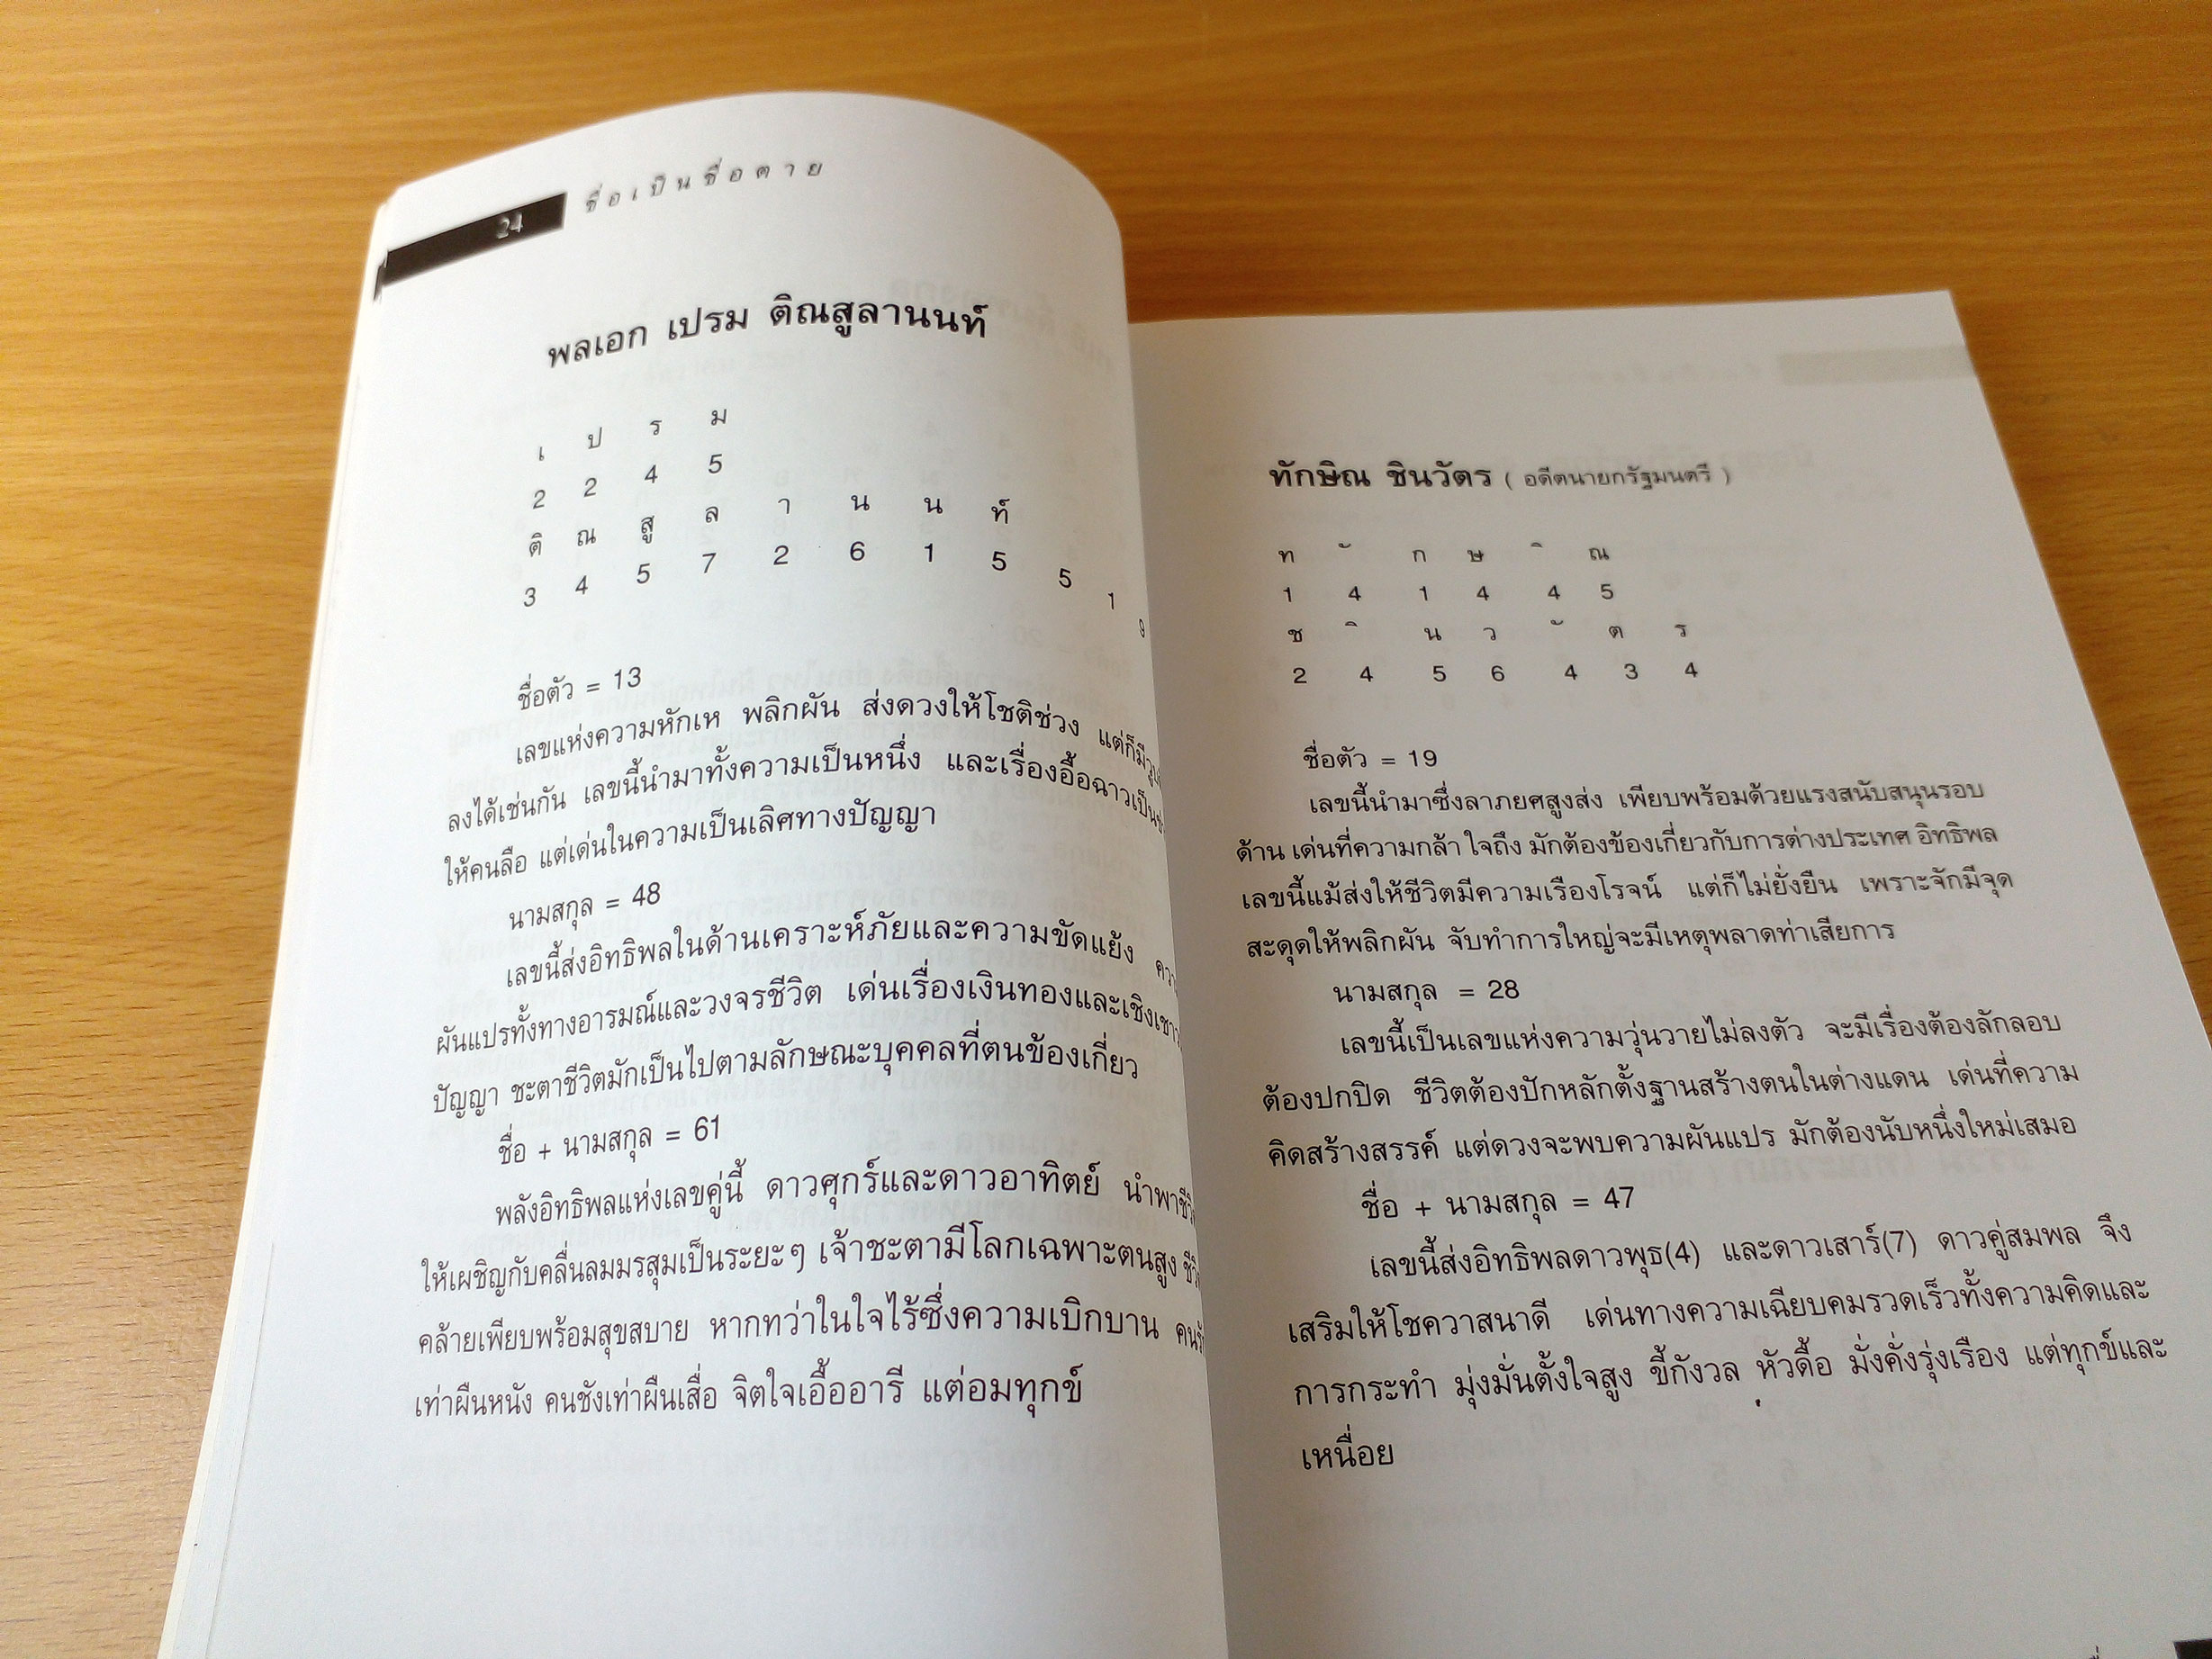 24 ชื่อเป็นชื่อตาย
พลเอก เปรม ติณสูลานนท์
เ ป ร ม
2 2 4 5
ติ ณ สู ล า น น ท์
3 4 5 7 2 6 1 5 5 1 9
ชื่อตัว = 13
เลขแห่งความหักเห พลิกผัน ส่งดวงให้โชติช่วง แต่ก็มี
ลงได้เช่นกัน เลขนี้นำมาทั้งความเป็นหนึ่ง และเรื่องอื้อฉาวเป็น
ให้คนลือ แต่เด่นในความเป็นเลิศทางปัญญา
นามสกุล = 48
เลขนี้ส่งอิทธิพลในด้านเคราะห์ภัยและความขัดแย้ง
ผันแปรทั้งทางอารมณ์และวงจรชีวิต เด่นเรื่องเงินทองและเชิงเชาว
ปัญญา ชะตาชีวิตมักเป็นไปตามลักษณะบุคคลที่ตนข้องเกี่ยว
ชื่อ + นามสกุล = 61
พลังอิทธิพลแห่งเลขคู่นี้ ดาวศุกร์และดาวอาทิตย์ นำพา
ให้เผชิญกับคลื่นลมมรสุมเป็นระยะๆ เจ้าชะตามีโลกเฉพาะตนสูง
คล้ายเพียบพร้อมสุขสบาย หากทว่าในใจไร้ซึ่งความเบิกบาน
เท่าผืนหนัง คนชังเท่าผืนเสื่อ จิตใจเอื้ออารี แต่อมทุกข์
ทักษิณ ชินวัตร ( อดีตนายกรัฐมนตรี )
ท ั ก ษ ิ ณ
1 4 1 4 4 5
ช ิ น ว ั ต ร
2 4 5 6 4 3 4
ชื่อตัว = 19
เลขนี้นำมาซึ่งลาภยศสูงส่ง เพียบพร้อมด้วยแรงสนับสนุนรอบ
ด้าน เด่นที่ความกล้า ใจถึง มักต้องข้องเกี่ยวกับการต่างประเทศ อิทธิพล
เลขนี้แม้ส่งให้ชีวิตมีความเรืองโรจน์ แต่ก็ไม่ยั่งยืน เพราะจักมีจุด
สะดุดให้พลิกผัน จับทำการใหญ่จะมีเหตุพลาดท่าเสียการ
นามสกุล = 28
เลขนี้เป็นเลขแห่งความวุ่นวายไม่ลงตัว จะมีเรื่องต้องลักลอบ
ต้องปกปิด ชีวิตต้องปักหลักตั้งฐานสร้างตนในต่างแดน เด่นที่ความ
คิดสร้างสรรค์ แต่ดวงจะพบความผันแปร มักต้องนับหนึ่งใหม่เสมอ
ชื่อ + นามสกุล = 47
เลขนี้ส่งอิทธิพลดาวพุธ(4) และดาวเสาร์(7) ดาวคู่สมพล จึง
เสริมให้โชควาสนาดี เด่นทางความเฉียบคมรวดเร็วทั้งความคิดและ
การกระทำ มุ่งมั่นตั้งใจสูง ขี้กังวล หัวดื้อ มั่งคั่งรุ่งเรือง แต่ทุกข์และ
เหนื่อย